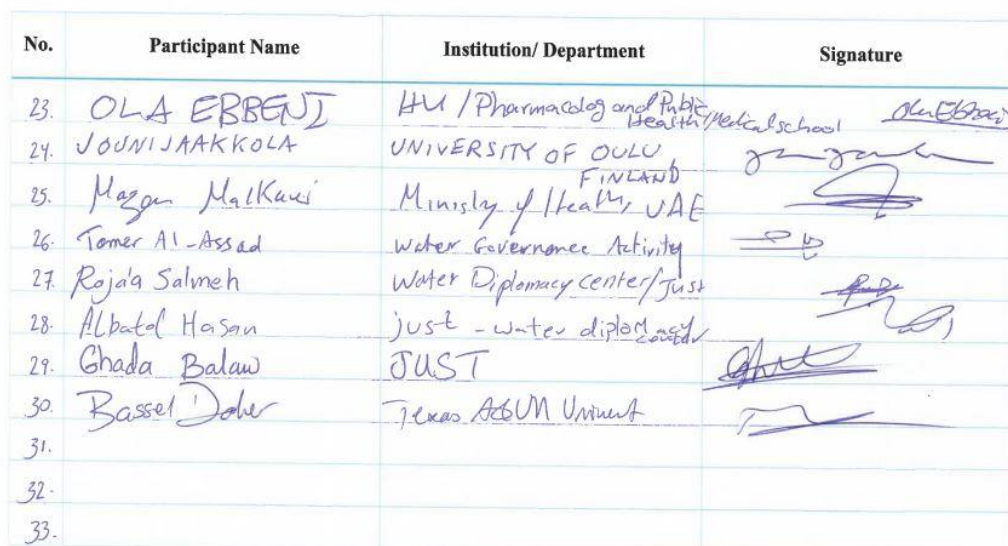 No. Participant Name Institution/ Department Signature
23. OLA EBBENI HU / Pharmacolog and Public Health/Medical school Ola Ebbeni
24. JOUNI JAAKKOLA UNIVERSITY OF OULU, FINLAND
25. Mazen Malkawi Ministry of Health, UAE
26. Tamer Al-Assad Water Governance Activity
27. Roja'a Salmeh Water Diplomacy center/Just
28. Albatol Hasan just - water diplomacy
29. Ghada Balaw JUST
30. Bassel Daher Texas A&M
31.
32.
33.